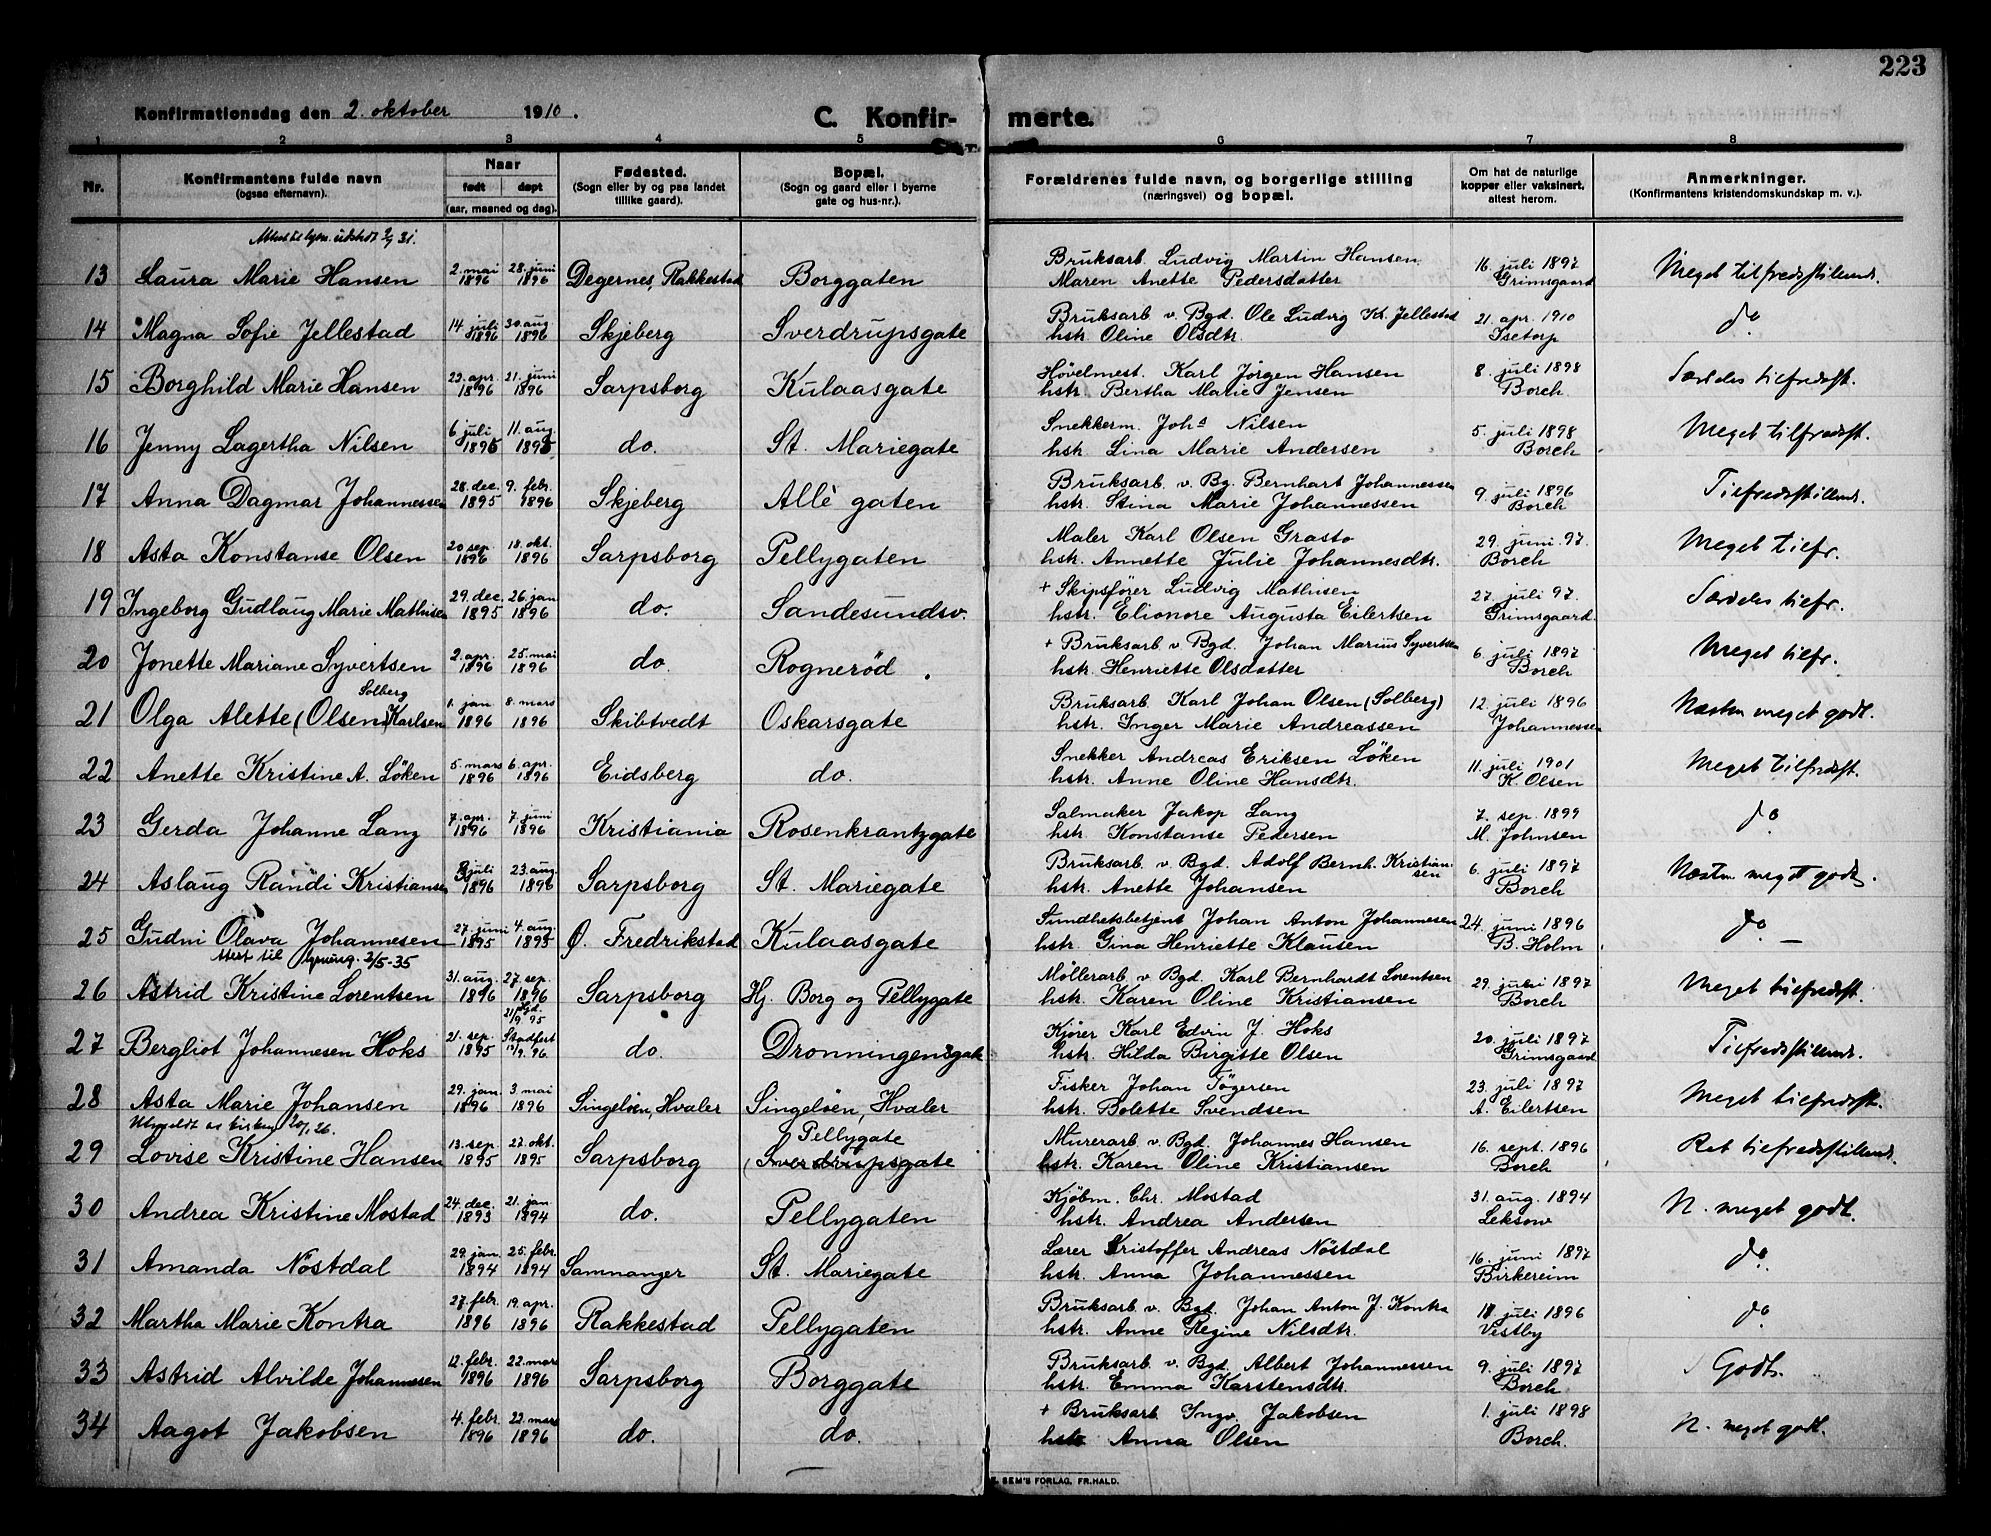 223
Konfirmationsdag den 2. oktober 1910.
C. Konfir- merte.
1 2 3 4 5 6 7 8
Nr. Konfirmantens fulde navn (ogsaa efternavn). Naar født døpt (aar, maaned og dag). Fødested. (Sogn eller by og paa landet tillike gaard). Bopæl. (Sogn og gaard eller i byerne gate og hus-nr.). Forældrenes fulde navn, og borgerlige stilling (næringsvei) og bopæl. Om hat de naturlige kopper eller vaksinert, attest herom. Anmerkninger. (Konfirmantens kristendomskundskap m. v.).
Attest til lysn. udstedt 2/9 31.
13 Laura Marie Hansen 2. mai 1896 28. juni 1896 Degernes, Rakkestad Borggaten Bruksarb. Ludvig Martin Hansen 16. juli 1897 Meget tilfredsstillende.
Maren Anette Pedersdatter Grimsgaard
14 Magna Sofie Jellestad 14. juli 1896 30. aug 1896 Skjeberg Sverdrupsgate Bruksarb. v. Bgd. Ole Ludvig K. Jellestad 21. apr. 1910 do
hstr. Oline Olsdtr. Isetorp
15 Borghild Marie Hansen 23. apr. 1896 21. juni 1896 Sarpsborg Kulaasgate Høvelmest. Karl Jørgen Hansen 8. juli 1898 Særdeles tilfredsst.
hstr. Bertha Marie Jensen Borch.
16 Jenny Lagertha Nilsen 6. juli 1895 11. aug. 1895 do. St. Mariegate Snekkerm. Johs Nilsen 5. juli 1898 Meget tilfredsst.
hstr. Lina Marie Andersen Borch
17 Anna Dagmar Johannessen 28. dec. 1895 9. febr. 1896 Skjeberg Allè gaten Bruksarb. v. Bg. Bernhart Johannessen 9. juli 1896 Tilfredsstillende.
hstr. Stina Marie Johannessen Borch
18 Asta Konstanse Olsen 20 sep. 1896 18. okt. 1896 Sarpsborg Pellygaten Maler Karl Olsen Grasto 29. juni. 97. Meget tilfr.
hstr. Annette Julie Johannesdtr. Borch
19 Ingeborg Gudlaug Marie Mathisen 29. dec. 1895 26. jan 1896 do. Sandesundsv. + Skipsfører Ludvig Mathisen 27. juli 97. Særdeles tilfr.
hstr. Elionore Augusta Eilertsen Grimsgaard.
20 Jonette Mariane Syvertsen 2. apr. 1896 25. mai 1896 do. Rognerød. + Bruksarb v. Bgd. Johan Marius Syvertsen 6. juli 1897 Meget tilfr.
hstr. Henriette Olsdatter Borch
Solberg
21 Olga Alette (Olsen) Karlsen 1. jan 1896 8. mars 1896 Skibtvedt Oskarsgate Bruksarb. Karl Johan Olsen (Solberg) 12. juli 1896 Næsten meget godt.
hstr. Inger Marie Andreassen Johannessen
22 Anette Kristine A. Løken 5. mars 1896 6. apr. 1896 Eidsberg do. Snekker Andreas Eriksen Løken 11. juli 1901 Meget tilfredsst.
hstr. Anne Oline Hansdtr. K. Olsen
23 Gerda Johanne Lang 7. apr. 1896 7. juni 1896 Kristiania Rosenkrantzgate Salmaker Jakop Lang 7. sep. 1899 do
hstr. Konstanse Pedersen M. Johnsen
24 Aslaug Randi Kristiansen juli 1896 23. aug. 1896 Sarpsborg St. Mariegate Bruksarb v. Bgd. Adolf Bernh. Kristiansen 6. juli 1897 Næsten meget godt.
hstr. Anette Johansen Borch
25 Gudni Olava Johannesen 27. juni 1895 4. aug. 1895 Ø. Fredrikstad Kulaasgate Sundhetsbetjent Johan Anton Johannesen 24. juni 1896 do.
Attest til lysning. 2/5-35 hstr. Gina Henriette Klausen B. Holm
26 Astrid Kristine Lorentsen 31. aug. 1896 27. sep. 1896 Sarpsborg Hj. Borg og Pellygate Møllerarb v. Bgd. Karl Bernhardt Lorentsen 29. juli 1897 Meget tilfredsst.
hstr. Karen Oline Kristiansen Borch
27 Bergliot Johannesen Hoks 21. sep. 1895 21/9 95 Stadfest 13/9. 96. do. Dronningensgate Kjører Karl Edvin J. Hoks 20. juli 1897 Tilfredsstillende.
hstr. Hilda Birgitte Olsen Grimsgaard
28 Asta Marie Johansen 29. jan. 1896 3. mai 1896 Singeløen, Hvaler Singeløen, Hvaler Fisker Johan Tøgersen 23. juli 1897 Meget tilfredsst.
hstr. Bolette Svendsen A. Eilertsen
Utmeldt av kirken 20/1 26. Pellygate
29 Lovise Kristine Hansen 13. sep. 1895 27. okt. 1895 Sarpsborg (Sverdrupsgate Murerarb v. Bgd. Johannes Hansen 16. sept. 1896 Ret tilfredsstillende.
hstr. Karen Oline Kristiansen Borch
30 Andrea Kristine Mostad 24. dec. 1893 21. jan. 1894 do. Pellygaten Kjøbm. Chr. Mostad 31. aug. 1894 N. meget godt.
hstr. Andrea Andersen Leksow
31 Amanda Nøstdal 29. jan. 1894 25. febr. 1894 Samnanger St. Mariegate Lærer Kristoffer Andreas Nøstdal 16. juni 1897 do.
hstr. Anna Johannessen Birkereim
32 Martha Marie Kontra 27. febr. 1896 19. apr. 1896 Rakkestad Pellygaten Bruksarb v. Bgd. Johan Anton J. Kontra 18. juli 1896 do
hstr. Anne Regine Nilsdtr. Vestby
33 Astrid Alvilde Johannesen 12. febr. 1896 22. mars 1896 Sarpsborg Borggate Bruksarb v. Bgd. Albert Johannessen 9. juli 1897 Godt.
hstr. Emma Karstensdtr. Borch
34 Aagot Jakobsen 4. febr. 1896 22. mars 1896 do. do. + Bruksarb. Ingv. Jakobsen 1. juli 1898 N. meget godt.
hstr Anna Olsen Borch.
SEM'S FORLAG, FR.HALD.